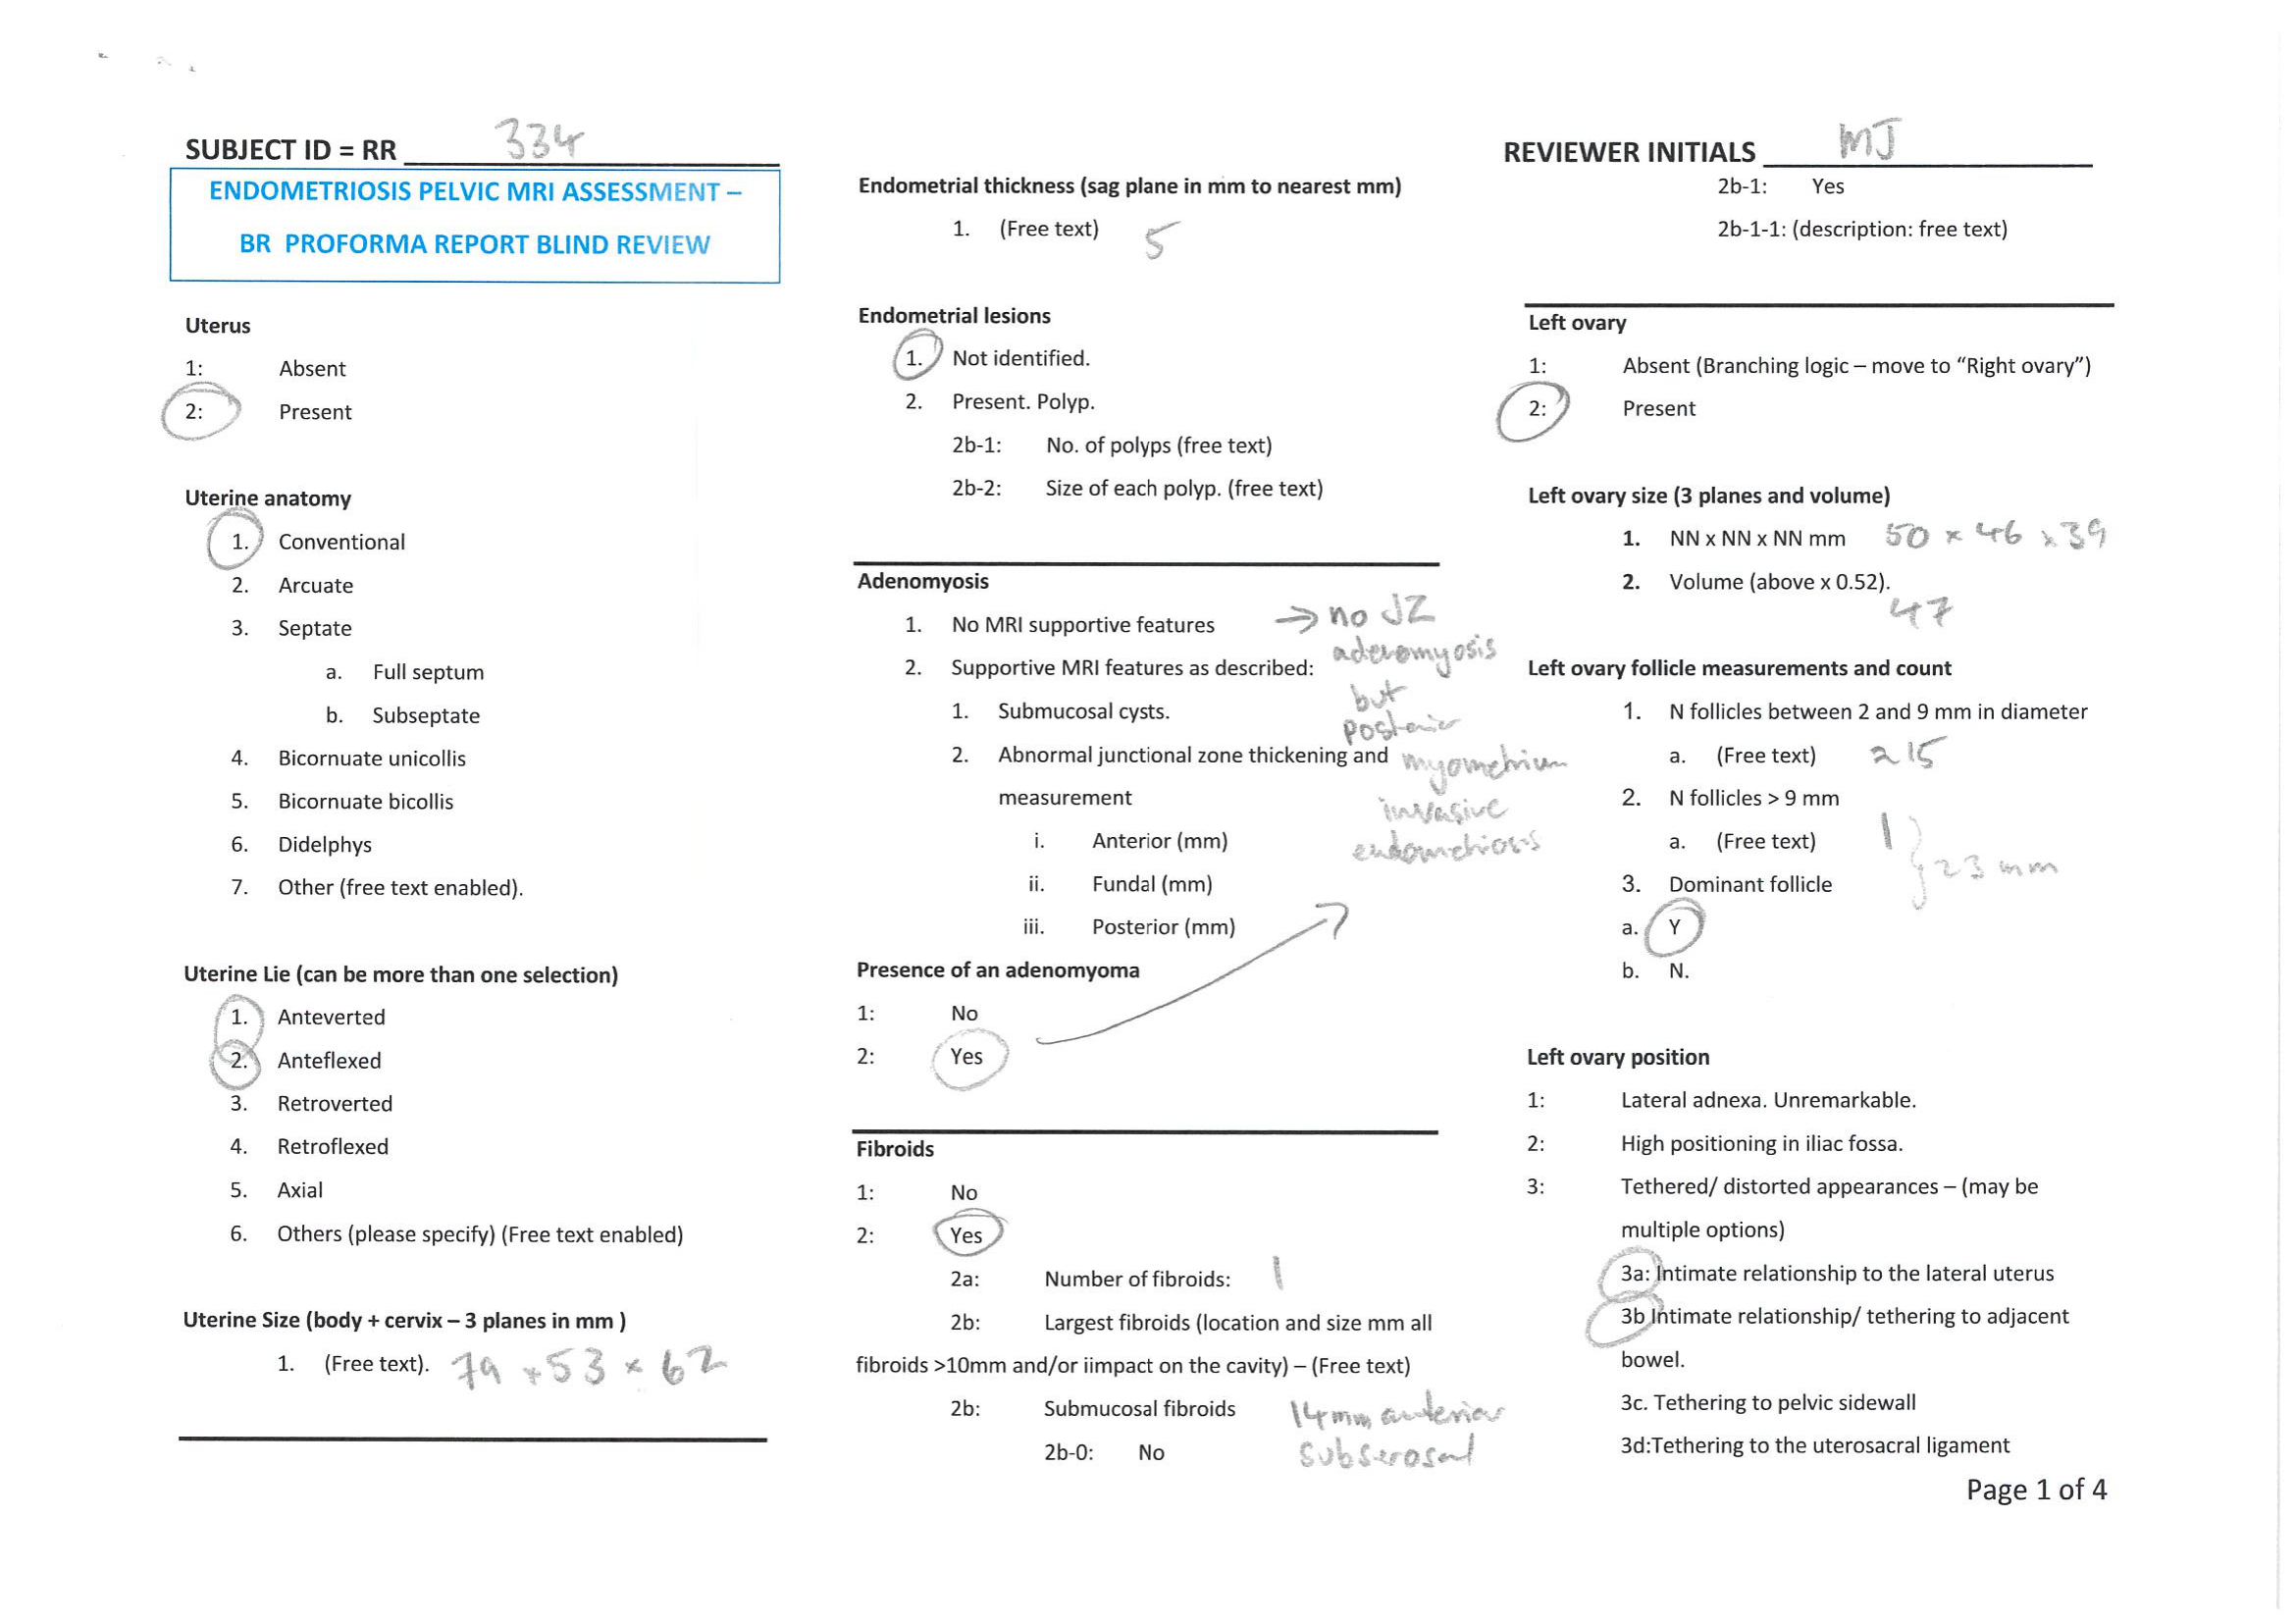 SUBJECT ID = RR 334
ENDOMETRIOSIS PELVIC MRI ASSESSMENT –
BR PROFORMA REPORT BLIND REVIEW
Uterus
1: Absent
2: Present
Uterine anatomy
1. Conventional
2. Arcuate
3. Septate
a. Full septum
b. Subseptate
4. Bicornuate unicollis
5. Bicornuate bicollis
6. Didelphys
7. Other (free text enabled).
Uterine Lie (can be more than one selection)
1. Anteverted
2. Anteflexed
3. Retroverted
4. Retroflexed
5. Axial
6. Others (please specify) (Free text enabled)
Uterine Size (body + cervix – 3 planes in mm )
1. (Free text). 79 x 53 x 62
Endometrial thickness (sag plane in mm to nearest mm)
1. (Free text) 5
Endometrial lesions
1. Not identified.
2. Present. Polyp.
2b-1: No. of polyps (free text)
2b-2: Size of each polyp. (free text)
Adenomyosis
1. No MRI supportive features
2. Supportive MRI features as described:
1. Submucosal cysts.
2. Abnormal junctional zone thickening and
measurement
i. Anterior (mm)
ii. Fundal (mm)
iii. Posterior (mm)
→ no JZ
adenomyosis
but
posterior
myometrium
invasive
endometriosis
Presence of an adenomyoma
1: No
2: Yes
Fibroids
1: No
2: Yes
2a: Number of fibroids: 1
2b: Largest fibroids (location and size mm all
fibroids >10mm and/or iimpact on the cavity) – (Free text)
2b: Submucosal fibroids
2b-0: No
14mm anterior
subserosal
REVIEWER INITIALS MJ
2b-1: Yes
2b-1-1: (description: free text)
Left ovary
1: Absent (Branching logic – move to “Right ovary”)
2: Present
Left ovary size (3 planes and volume)
1. NN x NN x NN mm 50 x 46 x 39
2. Volume (above x 0.52).
47
Left ovary follicle measurements and count
1. N follicles between 2 and 9 mm in diameter
a. (Free text) 15
2. N follicles > 9 mm
a. (Free text) 1
} 23 mm
3. Dominant follicle
a. Y
b. N.
Left ovary position
1: Lateral adnexa. Unremarkable.
2: High positioning in iliac fossa.
3: Tethered/ distorted appearances – (may be
multiple options)
3a: Intimate relationship to the lateral uterus
3b Intimate relationship/ tethering to adjacent
bowel.
3c. Tethering to pelvic sidewall
3d:Tethering to the uterosacral ligament
Page 1 of 4